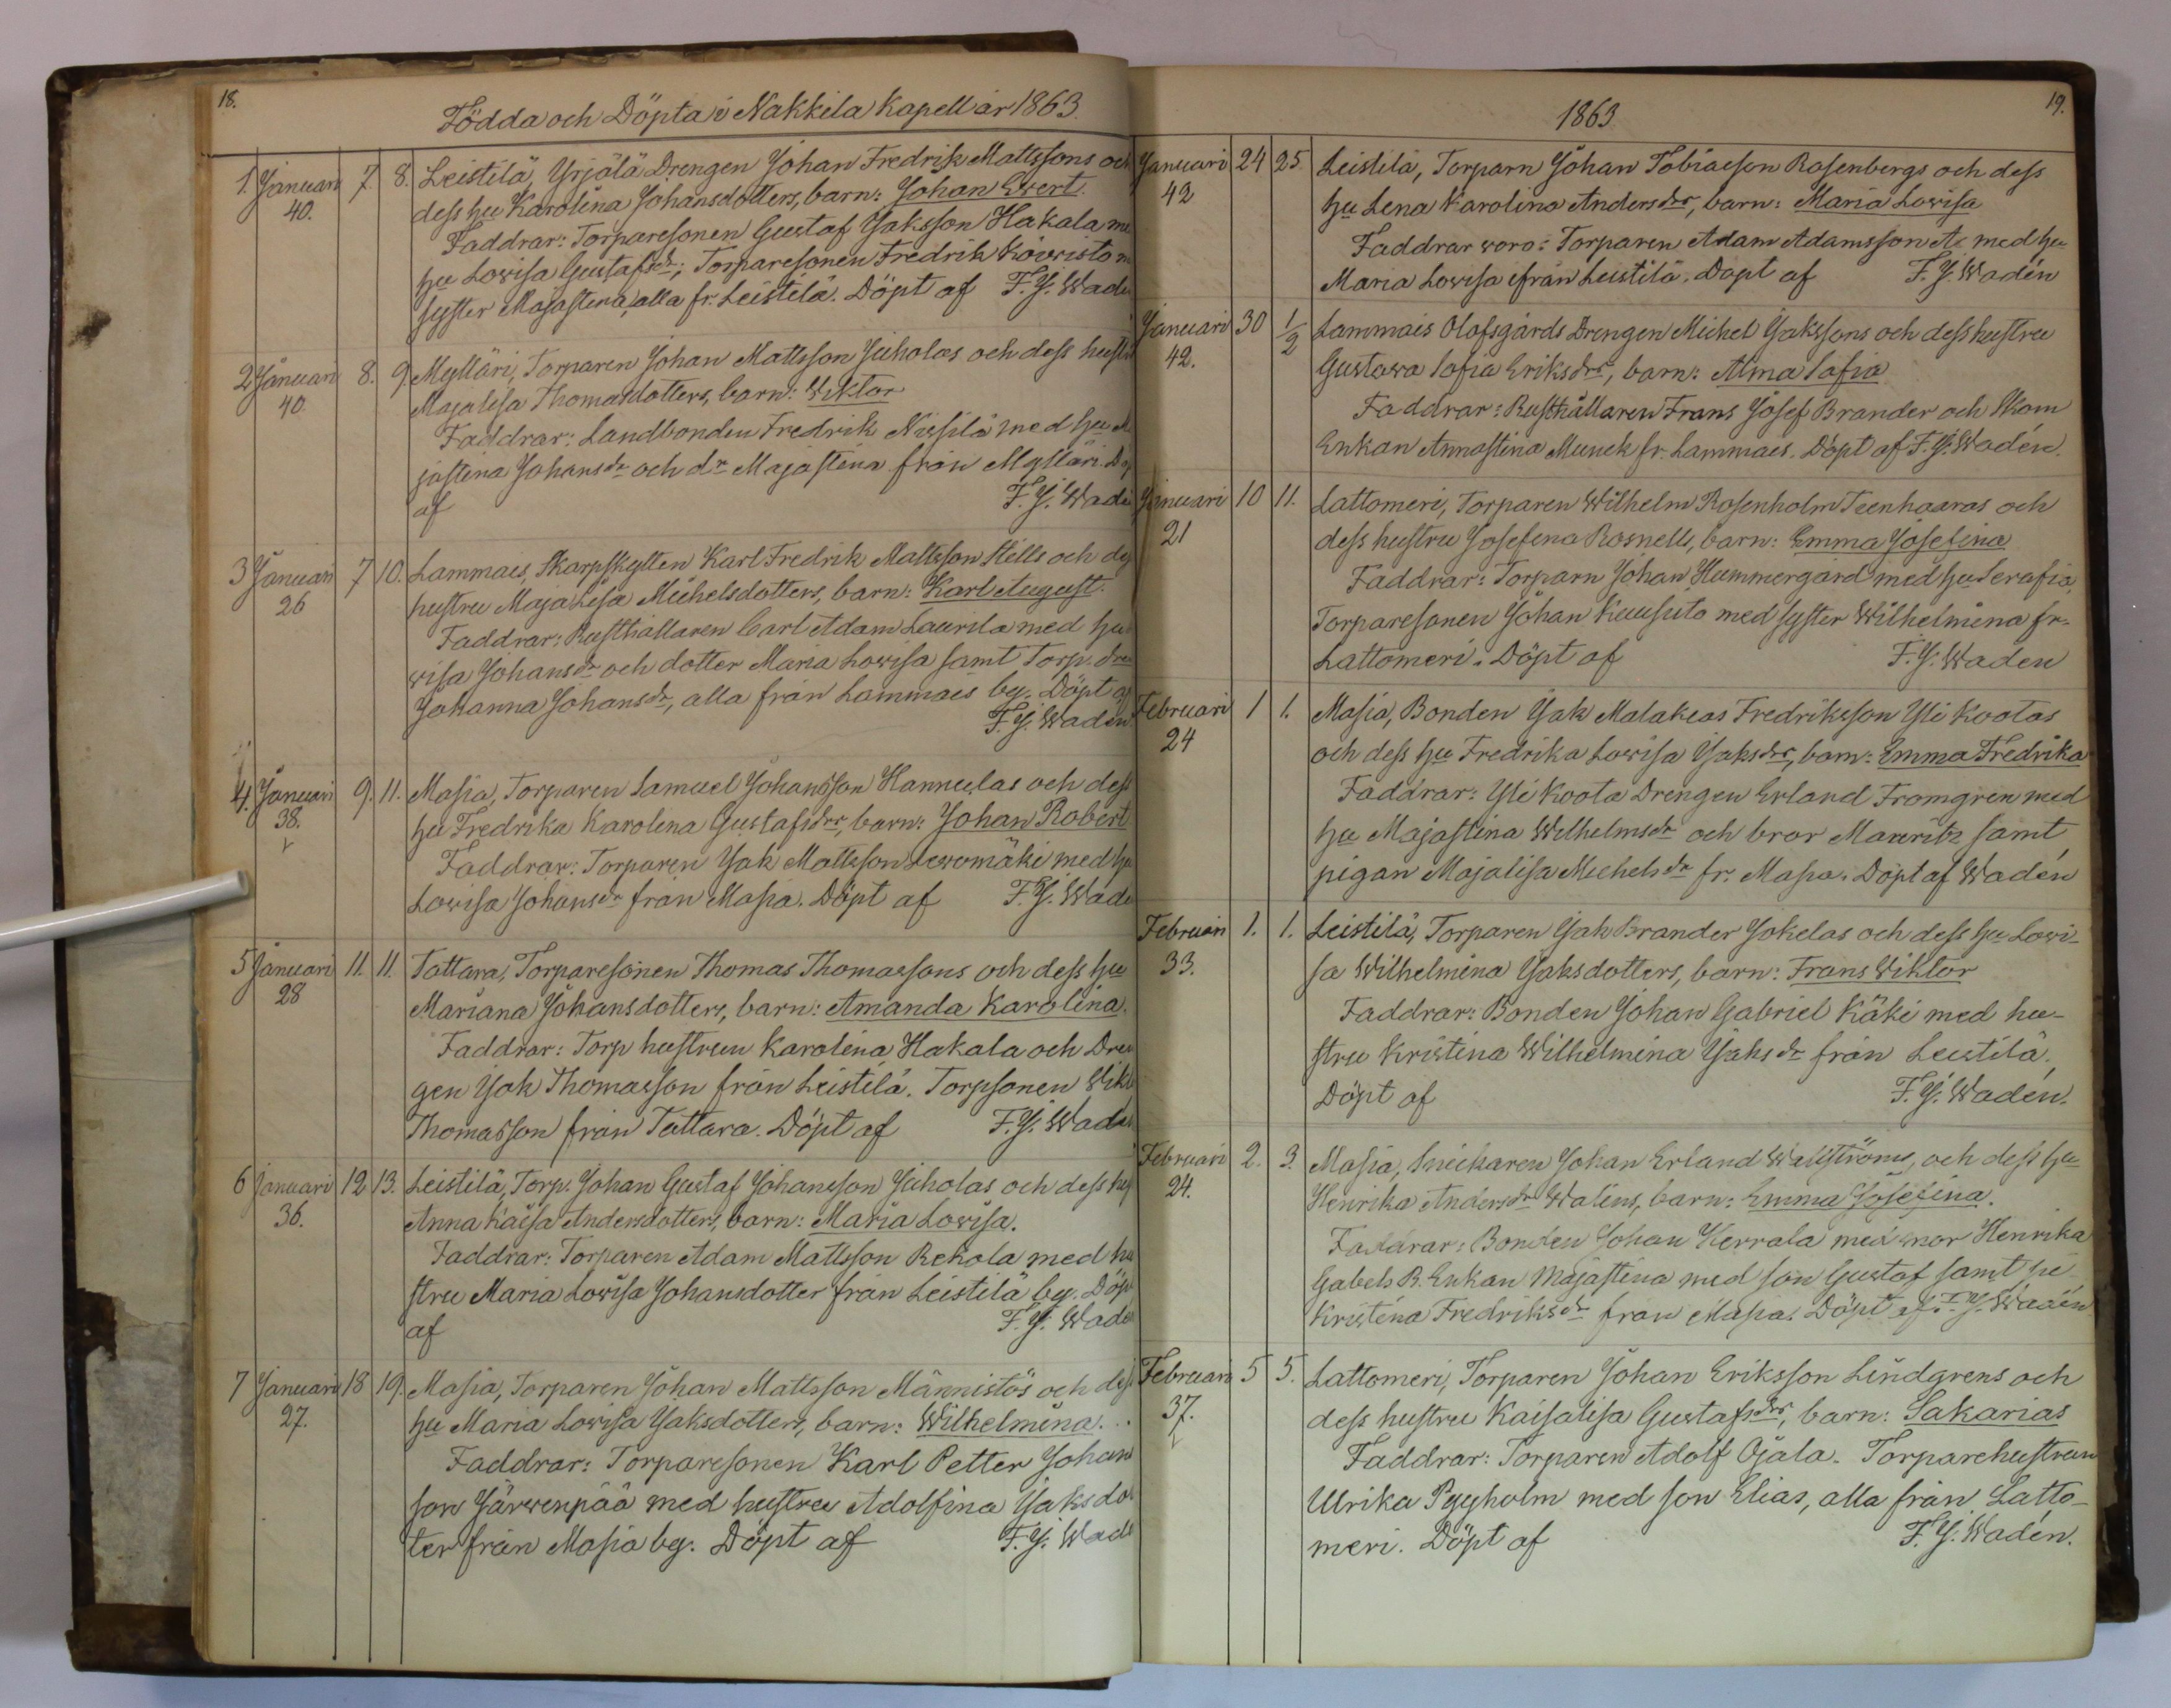 18.
Födda och Döpta i Nakkila Kapell år 1863.
1. Januari 7. 8. Leistilä, Yrjälä Drengen Johan Fredrik Mattssons och
40. dess hu Karolina Johansdotters, barn: Johan Evert.
Faddrar: Torparesonen Gustaf Jaksson Hakala me
hu Lowisa Gustafsdr; Torparesonen Fredrik Koiwisto m
syster Majastina, alla fr. Leistilä. Döpt af F. J. Wade
2 Januari 8. 9. Mylläri, Torparen Johan Mattsson Juholas och dess hustr
40. Majalisa Thomasdotters, barn: Wiktor
Faddrar: Landbonden Fredrik Nissilä med hu Ma
jastina Johansdr och dr Majastina från Mylläri. Döp
af F. J. Wadé
3 Januari 7 10. Lammais, Skarpskytten Karl Fredrik Mattsson Stells och des
26 hustru Maja Lisa Michelsdotters, barn: Karl August.
Faddrar: Rusthållaren Carl Adam Laurila med hu
wisa Johansdr och dotter Maria Lowisa samt Torp. dr
Johanna Johansdr, alla från Lammais by. Döpt af
F. J. Wadén
4. Januari 9. 11. Masia, Torparen Samuel Johansson Hannulas och dess
38. hu Fredrika Karolina Gustafsdrs, barn: Johan Robert
Faddrar: Torparen Jak Mattsson Lewomäki med hu
Lowisa Johansdr från Masia. Döpt af F. J. Wade
5 Januari 11. 11. Tattara, Torparesonen Thomas Thomassons och dess hu
28 Mariana Johansdotters, barn: Amanda Karolina.
Faddrar: Torp hustrun Karolina Hakala och Dren
gen Jak Thomasson från Leistilä. Torpsonen Wikt
Thomasson från Tattara. Döpt af F. J. Wadé
6 Januari 12 13. Leistilä, Torp. Johan Gustaf Johansson Juholas och dess hu
36. Anna Kaisa Andersdotters, barn: Maria Lowisa.
Faddrar: Torparen Adam Mattsson Rekola med hu
stru Maria Lowisa Johansdotter från Leistilä by. Döpt
af F. J. Wadé
7 Januari 18 19. Masia, Torparen Johan Mattsson Männistös och dess
27. hu Maria Lowisa Jaksdotters, barn: Wilhelmina.
Faddrar: Torparesonen Karl Petter Johans
son Järwenpää med hustru Adolfina Jaksdot
ter från Masia by. Döpt af F. J. Wadé
1863.
19.
Januari 24 25. Leistilä, Torparn Johan Tobiasson Rosenbergs och dess
42 hu Lena Karolina Andersdrs, barn: Maria Lowisa
Faddrar woro: Torparen Adam Adamsson A. med hu
Maria Lowisa ifrån Leistilä. Döpt af F. J. Wadén
Januari 30 1/2 Lammais Olofsgårds Drengen Michel Jakssons och dess hustru
42. Gustawa Sofia Eriksdrs, barn: Alma Sofia
Faddrar: Rusthållaren Frans Josef Brander och Skom
Enkan Annastina Munck fr. Lammais. Döpt af F. J. Wadén.
Januari 10 11. Lattomeri, Torparen Wilhelm Rosenholm Teenhaaras och
21 dess hustru Josefina Rosnells, barn: Emma Josefina
Faddrar: Torparn Johan Hummergård med hu Serafia,
Torparesonen Johan Kuusisto med syster Wilhelmina fr.
Lattomeri. Döpt af F. J. Waden
Februari 1 1. Masia, Bonden Jak Malakias Fredriksson Yli Kootas
24 och dess hu Fredrika Lowisa Jaksdrs, barn: Emma Fredrika
Faddrar: Yli Koota Drengen Erland Fromgren med
hu Majastina Wilhelmsdr och bror Mauritz samt
pigan Majalisa Michelsdr fr. Masia. Döpt af Wadén
Februari 1. 1. Leistilä, Torparen Jak Brander Jokelas och dess hu Lowi-
33. sa Wilhelmina Jaksdotters, barn: Frans Wiktor
Faddrar: Bonden Johan Gabriel Käki med hu-
stru Kristina Wilhelmina Jaksdr från Leistilä.
Döpt af F. J. Wadén.
Februari 2. 3. Masia, Snickaren Johan Erland Wahlströms, och dess hu
24. Henrika Andersdr Walins, barn: Emma Josefina.
Faddrar: Bonden Johan Kerrala med mor Henrika
Gabels B. Enkan Majastina med son Gustaf samt pi
Kristina Fredriksdr från Masia. Döpt af F. J. Wadén
Februari 5 5. Lattomeri, Torparen Johan Eriksson Lindgrens och
37. dess hustru Kaisalisa Gustafsdrs, barn: Sakarias
Faddrar: Torparen Adolf Ojala. Torparehustrun
Ulrika Pyyholm med son Elias, alla från Latto-
meri. Döpt af F. J. Wadén.